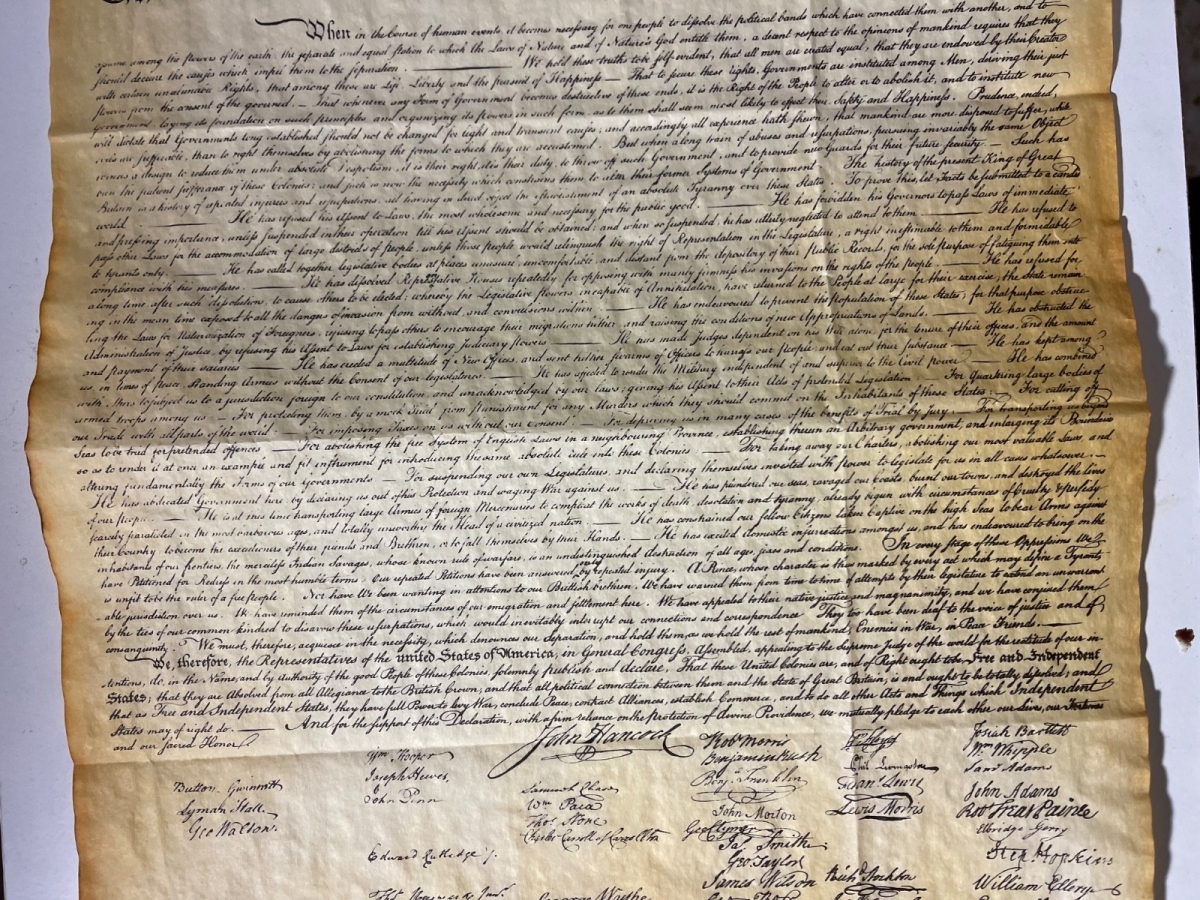 When in the Course of human events it becomes necessary for one people to dissolve the political bands which have connected them with another, and to
assume among the powers of the earth, the separate and equal station to which the Laws of Nature and of Nature's God entitle them, a decent respect to the opinions of mankind requires that they
should declare the causes which impel them to the separation. — We hold these truths to be self-evident, that all men are created equal, that they are endowed by their Creator
with certain unalienable Rights, that among these are Life, Liberty and the pursuit of Happiness — That to secure these rights, Governments are instituted among Men, deriving their just
powers from the consent of the governed. — That whenever any Form of Government becomes destructive of these ends, it is the Right of the People to alter or to abolish it, and to institute new
Government, laying its foundation on such principles and organizing its powers in such form, as to them shall seem most likely to effect their Safety and Happiness. Prudence, indeed,
will dictate that Governments long established should not be changed for light and transient causes; and accordingly all experience hath shewn, that mankind are more disposed to suffer, while
evils are sufferable, than to right themselves by abolishing the forms to which they are accustomed. But when a long train of abuses and usurpations, pursuing invariably the same Object
evinces a design to reduce them under absolute Despotism, it is their right, it is their duty, to throw off such Government, and to provide new Guards for their future security. — Such has
been the patient sufferance of these Colonies; and such is now the necessity which constrains them to alter their former Systems of Government. The history of the present King of Great
Britain is a history of repeated injuries and usurpations, all having in direct object the establishment of an absolute Tyranny over these States. To prove this, let Facts be submitted to a candid
world. — He has refused his Assent to Laws, the most wholesome and necessary for the public good. — He has forbidden his Governors to pass Laws of immediate
and pressing importance, unless suspended in their operation till his Assent should be obtained; and when so suspended, he has utterly neglected to attend to them. — He has refused to
pass other Laws for the accommodation of large districts of people, unless those people would relinquish the right of Representation in the Legislature, a right inestimable to them and formidable
to tyrants only. — He has called together legislative bodies at places unusual, uncomfortable, and distant from the depository of their Public Records, for the sole purpose of fatiguing them into
compliance with his measures. — He has dissolved Representative Houses repeatedly, for opposing with manly firmness his invasions on the rights of the people. — He has refused for
a long time, after such dissolutions, to cause others to be elected; whereby the Legislative powers, incapable of Annihilation, have returned to the People at large for their exercise; the State remain-
ing in the mean time exposed to all the dangers of invasion from without, and convulsions within. — He has endeavoured to prevent the population of these States; for that purpose obstruc-
ting the Laws for Naturalization of Foreigners; refusing to pass others to encourage their migrations hither, and raising the conditions of new Appropriations of Lands. — He has obstructed the
Administration of Justice, by refusing his Assent to Laws for establishing Judiciary powers. — He has made Judges dependent on his Will alone, for the tenure of their offices, and the amount
and payment of their salaries. — He has erected a multitude of New Offices, and sent hither swarms of Officers to harrass our people, and eat out their substance. — He has kept among
us, in times of peace, Standing Armies without the Consent of our legislatures. — He has affected to render the Military independent of and superior to the Civil power. — He has combined
with others to subject us to a jurisdiction foreign to our constitution, and unacknowledged by our laws; giving his Assent to their Acts of pretended Legislation: — For Quartering large bodies of
armed troops among us: — For protecting them, by a mock Trial, from punishment for any Murders which they should commit on the Inhabitants of these States: — For cutting off
our Trade with all parts of the world: — For imposing Taxes on us without our Consent: — For depriving us in many cases, of the benefits of Trial by jury: — For transporting us beyond
Seas to be tried for pretended offences — For abolishing the free System of English Laws in a neighbouring Province, establishing therein an Arbitrary government, and enlarging its Boundaries
so as to render it at once an example and fit instrument for introducing the same absolute rule into these Colonies: — For taking away our Charters, abolishing our most valuable Laws, and
altering fundamentally the Forms of our Governments: — For suspending our own Legislatures, and declaring themselves invested with power to legislate for us in all cases whatsoever. —
He has abdicated Government here, by declaring us out of his Protection and waging War against us. — He has plundered our seas, ravaged our Coasts, burnt our towns, and destroyed the lives
of our people. — He is at this time transporting large Armies of foreign Mercenaries to compleat the works of death, desolation and tyranny, already begun with circumstances of Cruelty & perfidy
scarcely paralleled in the most barbarous ages, and totally unworthy the Head of a civilized nation. — He has constrained our fellow Citizens taken Captive on the high Seas to bear Arms against
their Country, to become the executioners of their friends and Brethren, or to fall themselves by their Hands. — He has excited domestic insurrections amongst us, and has endeavoured to bring on the
inhabitants of our frontiers, the merciless Indian Savages, whose known rule of warfare, is an undistinguished destruction of all ages, sexes and conditions. In every stage of these Oppressions We
have Petitioned for Redress in the most humble terms: Our repeated Petitions have been answered only by repeated injury. A Prince, whose character is thus marked by every act which may define a Tyrant,
is unfit to be the ruler of a free people. Nor have We been wanting in attentions to our Brittish brethren. We have warned them from time to time of attempts by their legislature to extend an unwarrant-
able jurisdiction over us. We have reminded them of the circumstances of our emigration and settlement here. We have appealed to their native justice and magnanimity, and we have conjured them
by the ties of our common kindred to disavow these usurpations, which, would inevitably interrupt our connections and correspondence. They too have been deaf to the voice of justice and of
consanguinity. We must, therefore, acquiesce in the necessity, which denounces our Separation, and hold them, as we hold the rest of mankind, Enemies in War, in Peace Friends. —
We, therefore, the Representatives of the united States of America, in General Congress, Assembled, appealing to the Supreme Judge of the world for the rectitude of our in-
tentions, do, in the Name, and by authority of the good People of these Colonies, solemnly publish and declare, That these United Colonies are, and of Right ought to be Free and Independent
States; that they are Absolved from all Allegiance to the British Crown, and that all political connection between them and the State of Great Britain, is and ought to be totally dissolved; and
that as Free and Independent States, they have full Power to levy War, conclude Peace, contract Alliances, establish Commerce, and to do all other Acts and Things which Independent
States may of right do. — And for the support of this Declaration, with a firm reliance on the protection of divine Providence, we mutually pledge to each other our Lives, our Fortunes
and our sacred Honor.
John Hancock
Button Gwinnett
Lyman Hall
Geo Walton.
Wm Hooper
Joseph Hewes,
John Penn
Edward Rutledge /.
Samuel Chase
Wm Paca
Thos Stone
Charles Carroll of Carrollton
George Wythe
Robt Morris
Benjamin Rush
Benja Franklin
John Morton
Geo Clymer
Jas Smith
Geo. Taylor
James Wilson
Phil. Livingston
Frans Lewis
Lewis Morris
Richd Stockton
Josiah Bartlett
Wm Whipple
Saml Adams
John Adams
Robt Treat Paine
Elbridge Gerry
Step. Hopkins
William Ellery